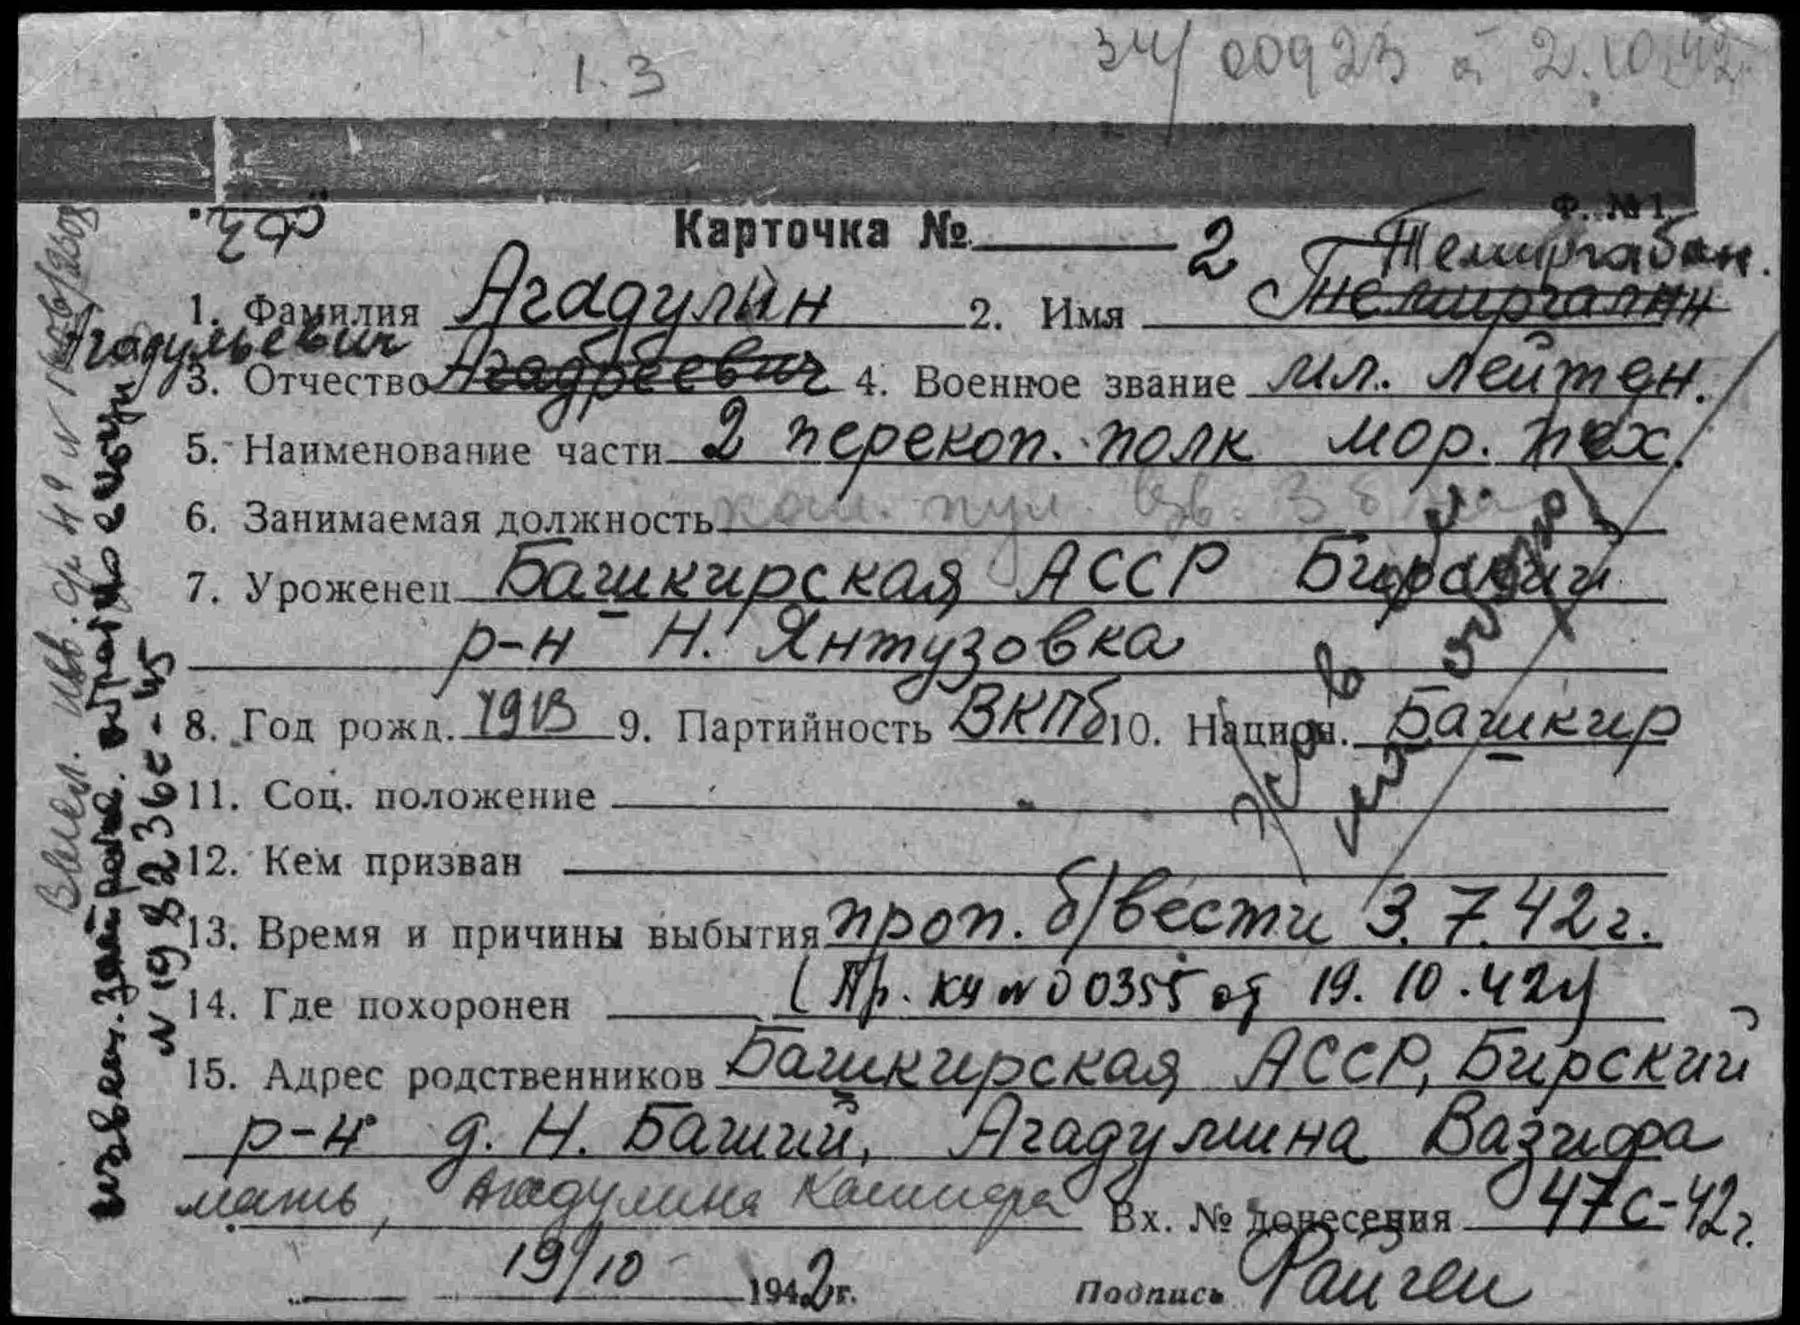 1. 3
34/00923 от 2.10.42г.
Ф. №1
Карточка № 2
Темиргабин.
1. Фамилия Агадулин 2. Имя Темиргалин
Агадульевич
3. Отчество Агадреевич 4. Военное звание мл. лейтен.
5. Наименование части 2 перекоп. полк мор. пех.
6. Занимаемая должность ком. пул. взв. 3 б-на
7. Уроженец Башкирская АССР Бирский
р-н Н. Янтузовка
8. Год рожд. 1913 9. Партийность ВКПб 10. Национ. Башкир
11. Соц. положение
12. Кем призван
13. Время и причины выбытия проп. б/вести 3.7.42г.
14. Где похоронен (Пр. КЧ № 00355 от 19.10.42г)
15. Адрес родственников Башкирская АССР, Бирский
р-н д. Н. Баший, Агадулина Вазифа
мать, Агадулина Кашифа Вх. № донесения 47с-42г.
19/10 1942г. Подпись
№ 198236с-45